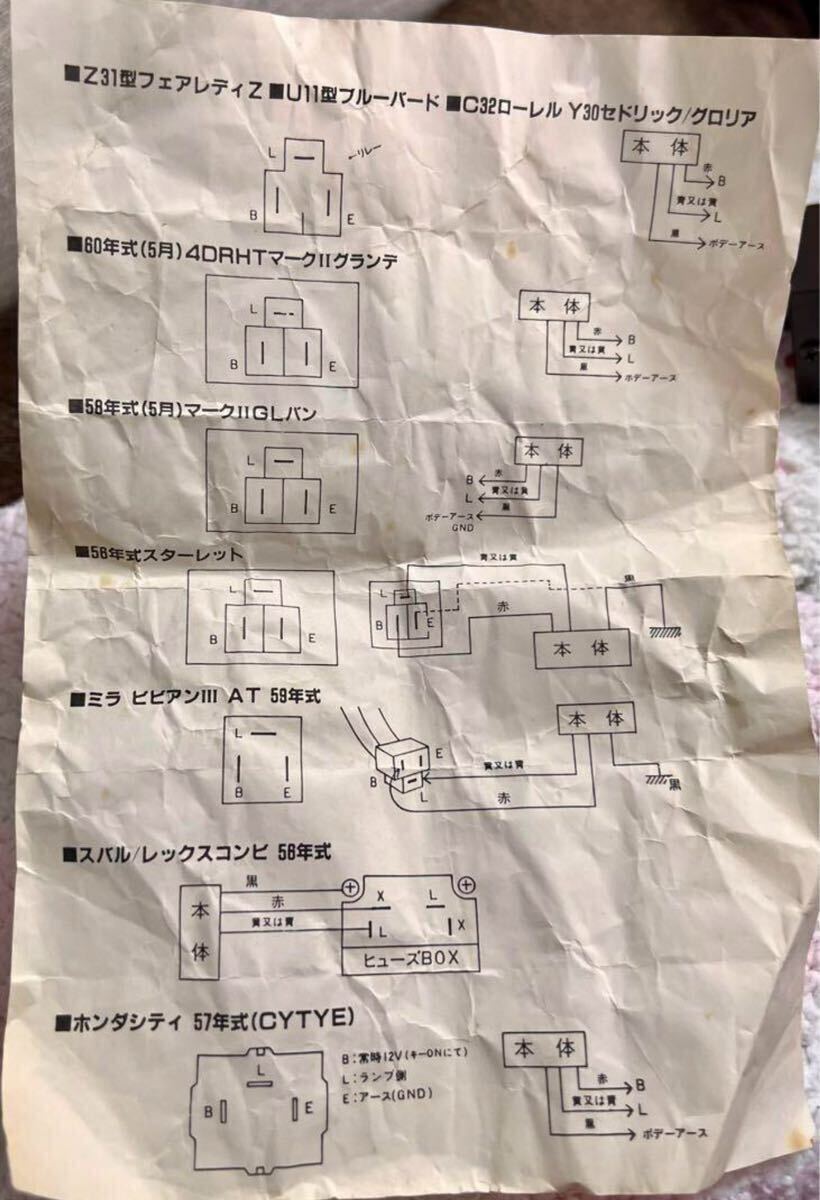 ■Z31型フェアレディZ ■U11型ブルーバード ■C32ローレル Y30セドリック/グロリア
L
リレー
B
E
本体
赤
B
青又は黄
L
黒
ボデーアース
■60年式(5月)4DRHTマークIIグランデ
L
B
E
本体
赤
B
青又は黄
L
黒
ボデーアース
■58年式(5月)マークIIGLバン
L
B
E
本体
B
赤
L
青又は黄
ボデーアース
GND
黒
■56年式スターレット
L
B
E
E
青又は黄
黒
赤
本体
■ミラ ビビアンIII AT 59年式
L
B
E
E
B
L
青又は黄
赤
本体
黒
■スバル/レックスコンビ 56年式
本体
黒
赤
青又は黄
X
L
L
X
ヒューズBOX
■ホンダシティ 57年式(CYTYE)
L
B
E
B:常時12V(キーONにて)
L:ランプ側
E:アース(GND)
本体
赤
B
青又は黄
L
黒
ボデーアース